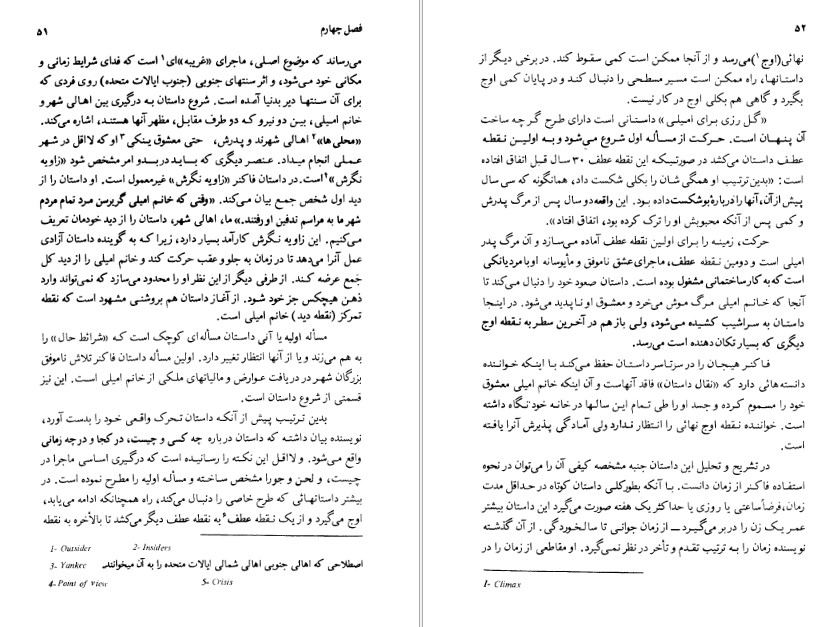 فصل چهارم
۵۱
می‌رساند که موضوع اصلی، ماجرای «غریبه»ای۱ است که فدای شرایط زمانی و
مکانی خود می‌شود، و اثر سنتهای جنوبی (جنوب ایالات متحده) روی فردی که
برای آن سنتها دیر بدنیا آمده است. شروع داستان به درگیری بین اهالی شهر و
خانم امیلی، بین دو نیرو که دو طرف مقابل، مظهر آنها هستند، اشاره می‌کند.
«محلی ها»۲ اهالی شهرند و پدرش، حتی معشوق ینکی۳ او که لااقل در شهر
عملی انجام میداد. عنصر دیگری که باید در بدو امر مشخص شود «زاویه
نگرش»۴ است. در داستان فاکنر «زاویه نگرش» غیرمعمول است. او داستان را از
دید اول شخص جمع بیان می‌کند. «وقتی که خانم امیلی گریرسن مرد تمام مردم
شهر ما به مراسم تدفین او رفتند.» ما، اهالی شهر، داستان را از دید خودمان تعریف
می‌کنیم. این زاویه نگرش کارآمد بسیار دارد، زیرا که به گوینده داستان آزادی
عمل آنرا می‌دهد تا در زمان به جلو و عقب حرکت کند و خانم امیلی را از دید کل
جمع عرضه کند. از طرفی دیگر از این نظر او را محدود می‌سازد که نمی‌تواند وارد
ذهن هیچکس جز خود شود. از آغاز داستان هم بروشنی مشهود است که نقطه
تمرکز (نقطه دید) خانم امیلی است.
مسأله اولیه یا آنی داستان مسأله‌ای کوچک است که «شرائط حال» را
به هم می‌زند و یا از آنها انتظار تغییر دارد. اولین مسأله داستان فاکنر تلاش ناموفق
بزرگان شهر در دریافت عوارض و مالیاتهای ملکی از خانم امیلی است. این نیز
قسمتی از شروع داستان است.
بدین ترتیب پیش از آنکه داستان تحرک واقعی خود را بدست آورد،
نویسنده بیان داشته که داستان درباره چه کسی و چیست، در کجا و در چه زمانی
واقع می‌شود. و لااقل این نکته را رسانیده است که درگیری اساسی ماجرا در
چیست، و لحن و جو را مشخص ساخته و مسأله اولیه را مطرح نموده است. در
بیشتر داستانهائی که طرح خاصی را دنبال می‌کند، راه همچنانکه ادامه می‌یابد،
اوج می‌گیرد و از یک نقطه عطف۵ به نقطه عطف دیگر می‌کشد تا بالأخره به نقطه
1- Outsider 2- Insiders
3- Yankee اصطلاحی که اهالی جنوبی اهالی شمالی ایالات متحده را به آن میخوانند.
4- Point of View 5- Crisis
۵۲
نهائی(اوج۱)می‌رسد و از آنجا ممکن است کمی سقوط کند. در برخی دیگر از
داستانها، راه ممکن است مسیر مسطحی را دنبال کند و در پایان کمی اوج
بگیرد و گاهی هم بکلی اوج در کار نیست.
«گل رزی برای امیلی» داستانی است دارای طرح گر چه ساخت
آن پنهان است. حرکت از مسأله اول شروع می‌شود و به اولین نقطه
عطف داستان می‌کشد در صورتیکه این نقطه عطف ۳۰ سال قبل اتفاق افتاده
است: «بدین ترتیب او همگی شان را بکلی شکست داد، همانگونه که سی سال
پیش از آن، آنها را درباره بو شکست داده بود. این واقعه دو سال پس از مرگ پدرش
و کمی پس از آنکه محبوبش او را ترک کرده بود، اتفاق افتاد».
حرکت، زمینه را برای اولین نقطه عطف آماده می‌سازد و آن مرگ پدر
امیلی است و دومین نقطه عطف، ماجرای عشق ناموفق و مأیوسانه او با مرد یانکی
است که به کار ساختمانی مشغول بوده است. داستان صعود خود را دنبال می‌کند تا
آنجا که خانم امیلی مرگ موش می‌خرد و معشوق او ناپدید می‌شود. در اینجا
داستان به سراشیب کشیده می‌شود، ولی باز هم در آخرین سطر به نقطه اوج
دیگری که بسیار تکان دهنده است می‌رسد.
فاکنر هیجان را در سرتاسر داستان حفظ می‌کند با اینکه خواننده
دانسته هائی دارد که «نقال داستان» فاقد آنهاست و آن اینکه خانم امیلی معشوق
خود را مسموم کرده و جسد او را طی تمام این سالها در خانه خود نگاه داشته
است. خواننده نقطه اوج نهائی را انتظار ندارد ولی آمادگی پذیرش آنرا یافته
است.
در تشریح و تحلیل این داستان جنبه مشخصه کیفی آن را می‌توان در نحوه
استفاده فاکنر از زمان دانست. با آنکه بطورکلی داستان کوتاه در حداقل مدت
زمان، فرضاً ساعتی یا روزی یا حداکثر یک هفته صورت می‌گیرد این داستان بیشتر
عمر یک زن را در بر می‌گیرد — از زمان جوانی تا سالخوردگی. از آن گذشته
نویسنده زمان را به ترتیب تقدم و تأخر در نظر نمی‌گیرد. او مقاطعی از زمان را در
1- Climax